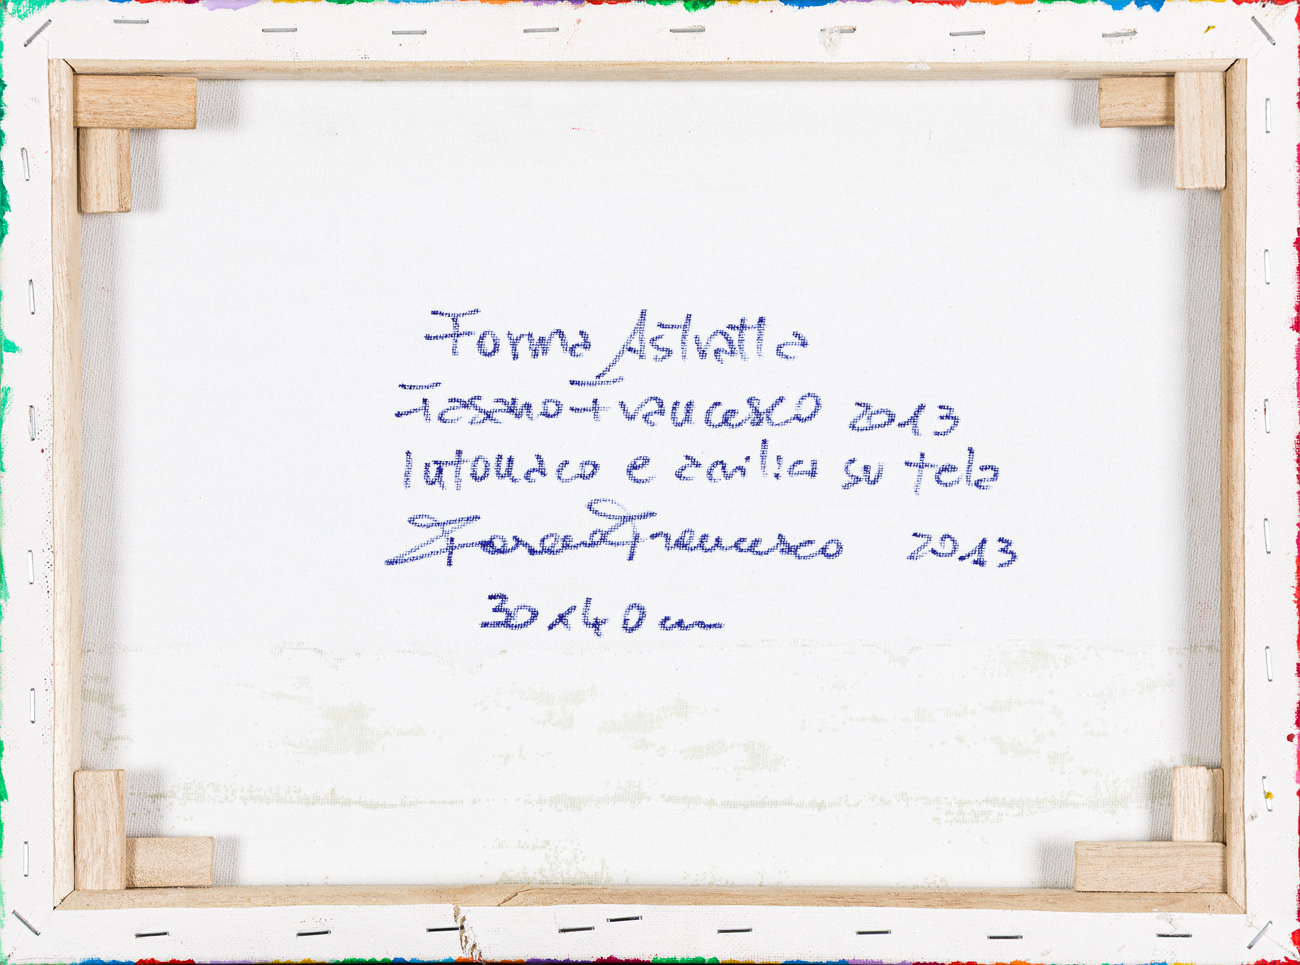 Forma Astratta
Fasano Francesco 2013
Intonaco e acrilico su tela
Fasano Francesco 2013
30x40 cm